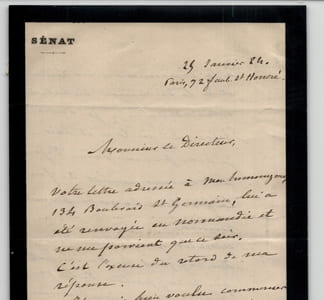 SÉNAT
25 Janvier 24.
Paris, 72 faub. St Honoré.
Monsieur le Directeur,
Votre lettre adressée à mon homonyme
134 Boulevard St Germain, lui a
été renvoyée en Normandie et
ne me parvient que ce soir.
C'est l'excuse du retard de ma
réponse.
bien voulu commencer